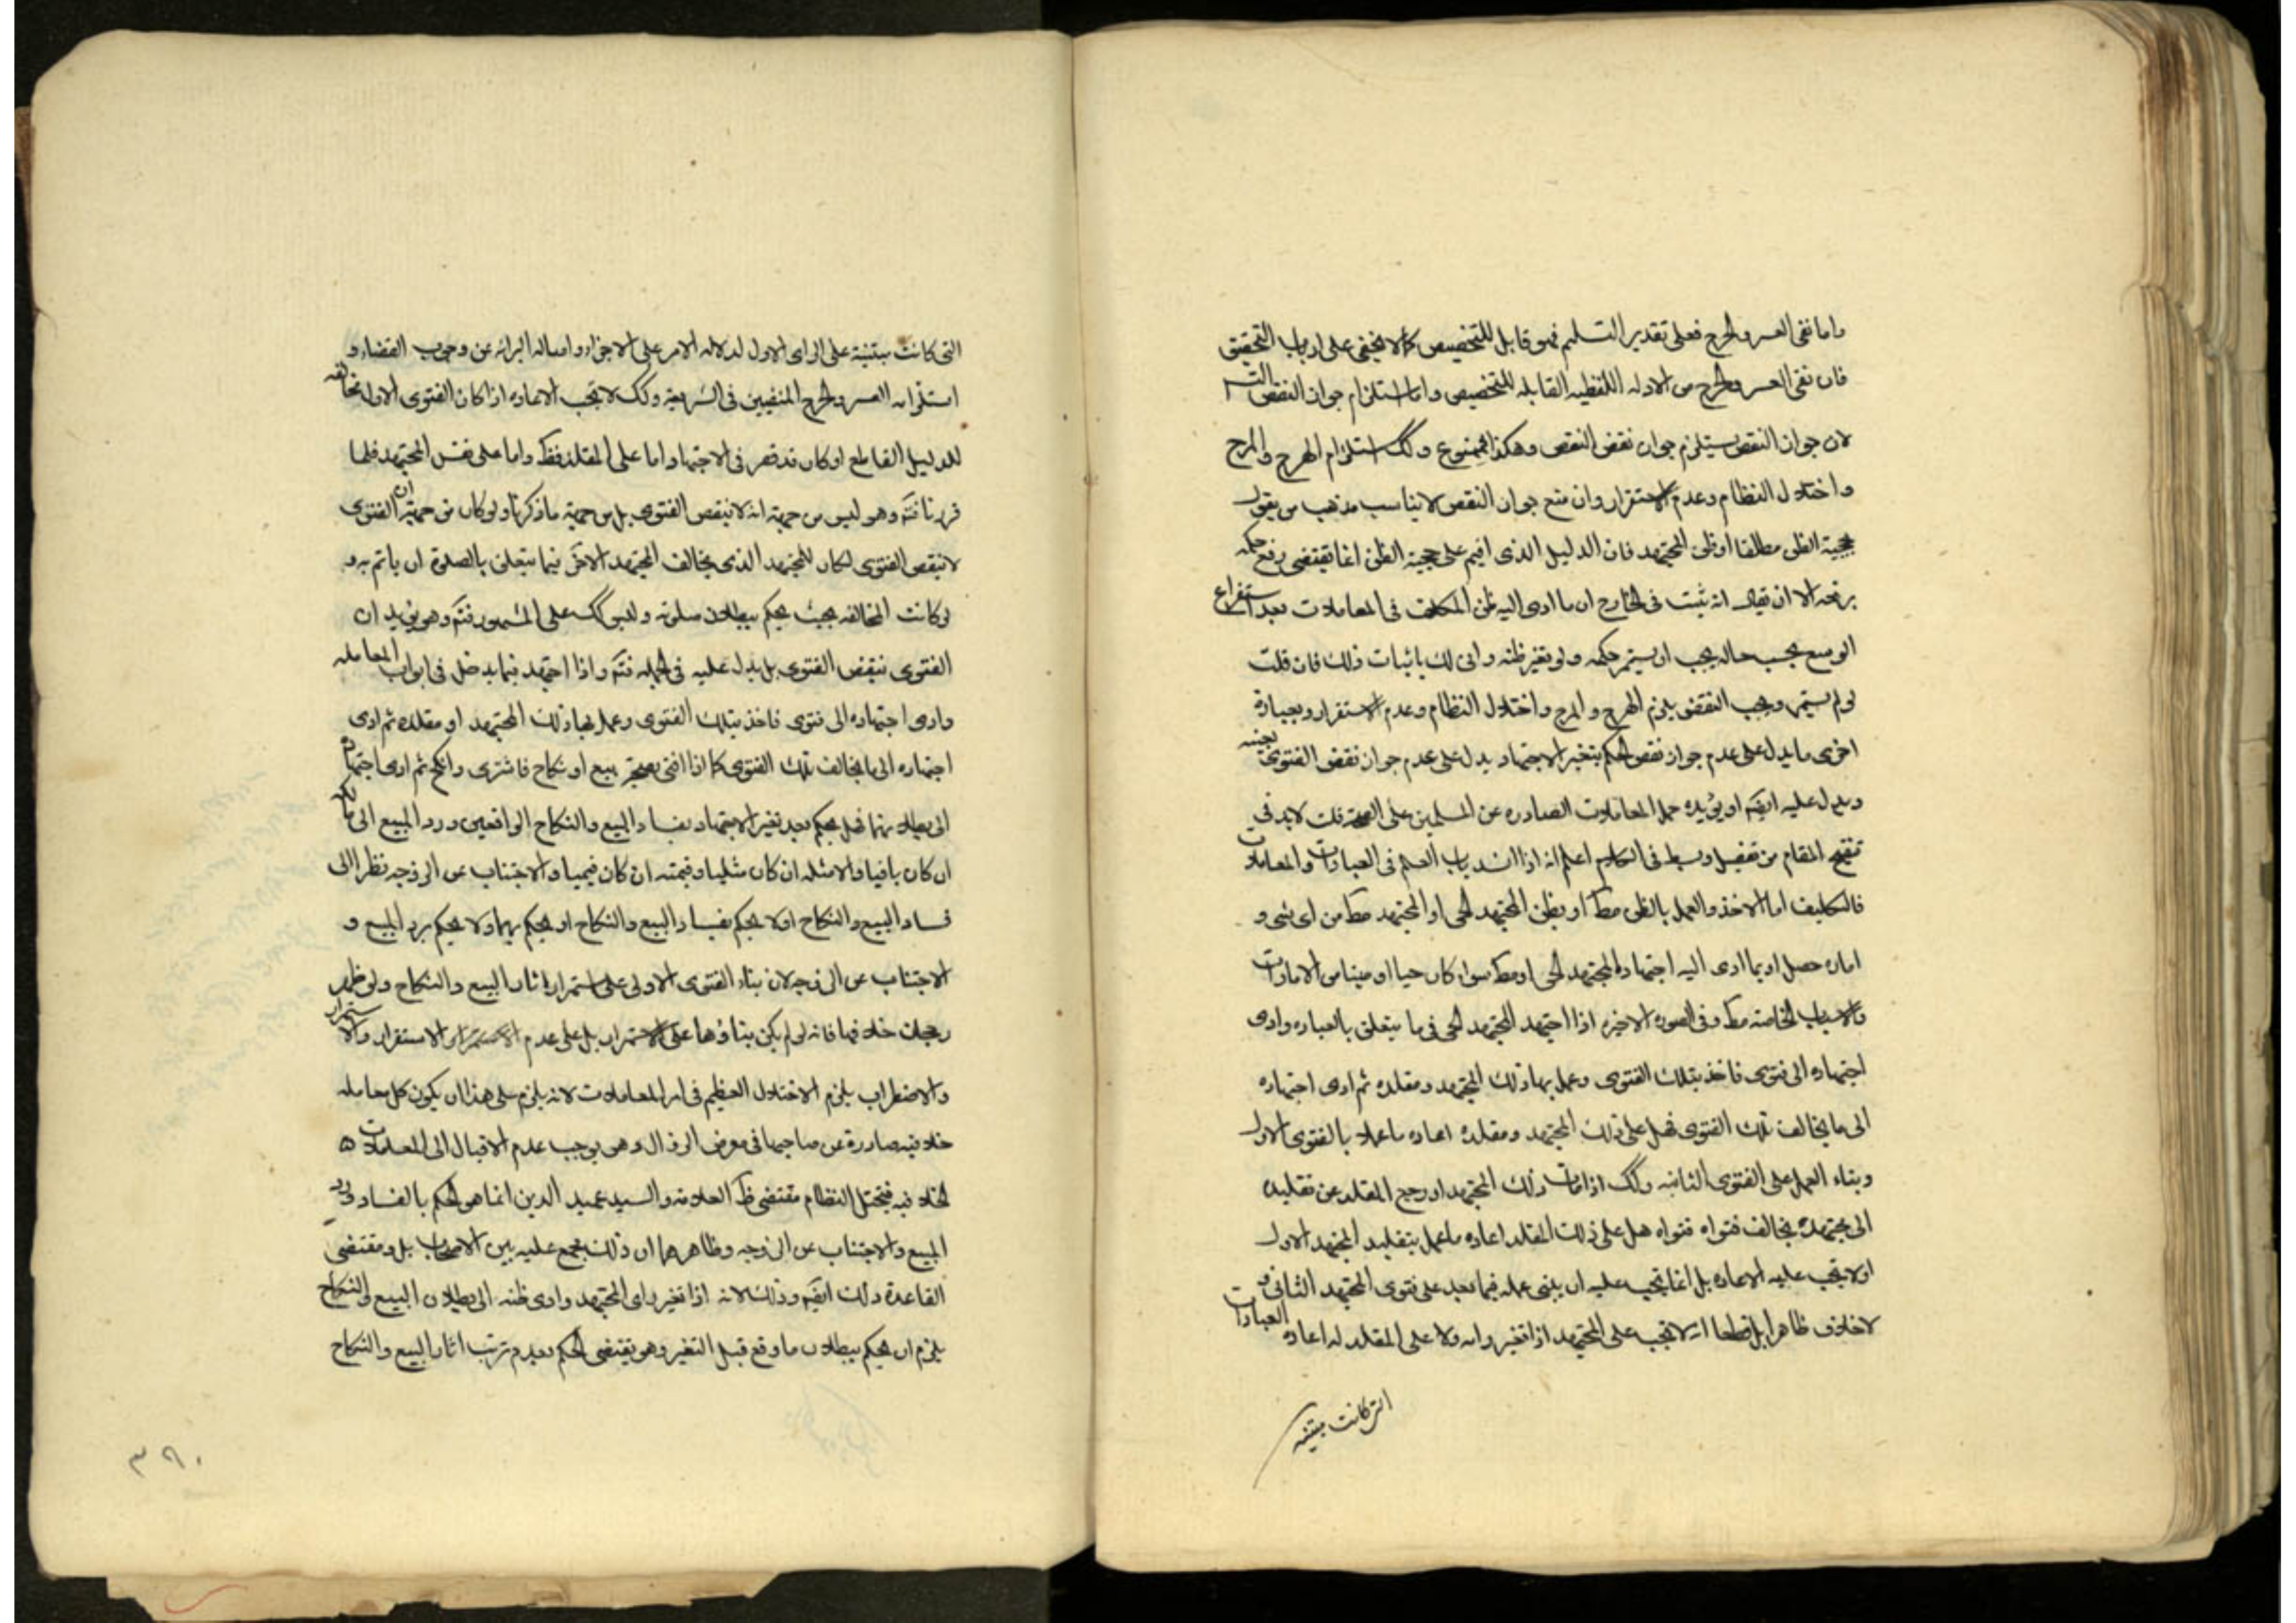 واما نفى العسر والحرج فعلى تقدير التسليم فهو قابل للتخصيص كما لا يخفى على ارباب التحقيق
فان نفى العسر والحرج من الادله اللفظيه القابله للتخصيص واما استلزام جواز النقض
لان جواز النقض يستلزم جواز نقض النقض وهكذا فممنوع وكك استلزام الهرج والمرج
واختلال النظام وعدم الاستقرار وان منع جواز النقض لا يناسب مذهب من يقول
بحجية الظن مطلقا او ظن المجتهد فان الدليل الذى اقيم على حجية الظن انما يقتضى رفع حكمه
برفعه الا ان يقال انه ثبت فى الخارج ان ما ادى اليه ظن المكلف فى المعاملات بعد استفراغ
الوسع بحسب حاله يجب ان يستمر حكمه ولو تغير ظنه وانى لك باثبات ذلك فان قلت
لو لم يستمر وجب النقض يلزم الهرج والمرج واختلال النظام وعدم الاستقرار وبعبارة
اخرى ما يدل على عدم جواز نقض الحكم بتغير الاجتهاد يدل على عدم جواز نقض الفتوى بعينه
ويدل عليه ايضا او يؤيده حمل المعاملات الصادره عن المسلمين على الصحة قلت لا بد فى
تنقيح المقام من تفصيل وبسط فى الكلام اعلم انه اذا انسد باب العلم فى العبادات والمعاملات
فالتكليف اما الاخذ والعمل بالظن مط او بظن المجتهد الحى او المجتهد مط من اى شى و
اماره حصل او بما ادى اليه اجتهاد المجتهد الحى او مط سواء كان حيا او ميتا من الامارات
والاسباب الخاصه مط وفى الصوره الاخيره اذا اجتهد المجتهد الحى فى ما يتعلق بالعباده وادى
اجتهاده الى فتوى فاخذ بتلك الفتوى وعمل بها ذلك المجتهد ومقلده ثم ادى اجتهاده
الى ما يخالف تلك الفتوى فهل على ذلك المجتهد ومقلده اعاده ما عملا بالفتوى الاول
وبناء العمل على الفتوى الثانيه وكك اذا مات ذلك المجتهد او رجع المقلد عن تقليده
الى مجتهد يخالف فتواه فتواه هل على ذلك المقلد اعاده ما عمل بتقليد المجتهد الاول
او لا يجب عليه الاعاده بل انما يجب عليه ان يبنى عمله فيما بعد على فتوى المجتهد الثانى و
لا خلاف ظاهرا بل قطعا انه لا تجب على المجتهد اذا تغير رايه ولا على المقلد له اعاده العبادات
التى كانت مبتنية
التى كانت مبتنية على الراى الاول لدلاله الامر على الاجزاء واصاله البرائه عن وجوب القضاء و
استلزامه العسر والحرج المنفيين فى الشريعة وكك لا تجب الاعاده اذا كان الفتوى الاوله مخالفه
للدليل القاطع او كان قد قصر فى الاجتهاد اما على المقلد فظ واما على نفس المجتهد فلما
قررنا فتم وهو ليس من جهة انه لا ينقض الفتوى بل من جهة ما ذكرنا ولو كان من جهة ان الفتوى
لا تنقض الفتوى لكان للمجتهد الذى يخالف المجتهد الاخر فيما يتعلق بالصلوة ان ياتم به و
لو كانت المخالفه بحيث يحكم ببطلان صلوته وليس كك على المشهور فتم وهو يؤيد ان
الفتوى تنقض الفتوى بل يدل عليه فى الجمله فتم واذا اجتهد فيما يدخل فى ابواب المعامله
وادى اجتهاده الى فتوى فاخذ بتلك الفتوى وعمل بها ذلك المجتهد او مقلده ثم ادى
اجتهاده الى ما يخالف تلك الفتوى كما اذا افتى بصحة بيع او نكاح فاشترى وانكح ثم ادى اجتهاده
الى بطلانهما فهل يحكم بعد تغير الاجتهاد بفساد البيع والنكاح الواقعين ورد المبيع الى مالكه
ان كان باقيا والا مثله ان كان مثليا وقيمته ان كان قيميا والاجتناب عن الزوجه نظرا الى
فساد البيع والنكاح او لا يحكم بفساد البيع والنكاح او يحكم بهما ولا يحكم برد المبيع و
الاجتناب عن الزوجه لان بناء الفتوى الاولى على استمرار اثار البيع والنكاح ولو ظهر
رجحان خلافها فانه لو لم يكن بناؤها على الاستمرار بل على عدم الاستقرار والاستمرار
والاضطراب يلزم الاختلال العظيم فى امر المعاملات لانه يلزم على هذا ان يكون كل معامله
خلافيه صادرة عن صاحبها فى معرض الزوال وهو يوجب عدم الاقبال الى المعاملات
الخلافيه فيختل النظام مقتضى ظ العلامه والسيد عميد الدين انما هو الحكم بالفساد ورد
المبيع والاجتناب عن الزوجه وظاهرهما ان ذلك مجمع عليه بين الاصحاب بل ومقتضى
القاعدة ذلك ايضا وذلك لانه اذا تغير راى المجتهد وادى ظنه الى بطلان البيع والنكاح
يلزم ان يحكم ببطلان ما وقع قبل التغير وهو يقتضى الحكم بعدم ترتب اثار البيع والنكاح